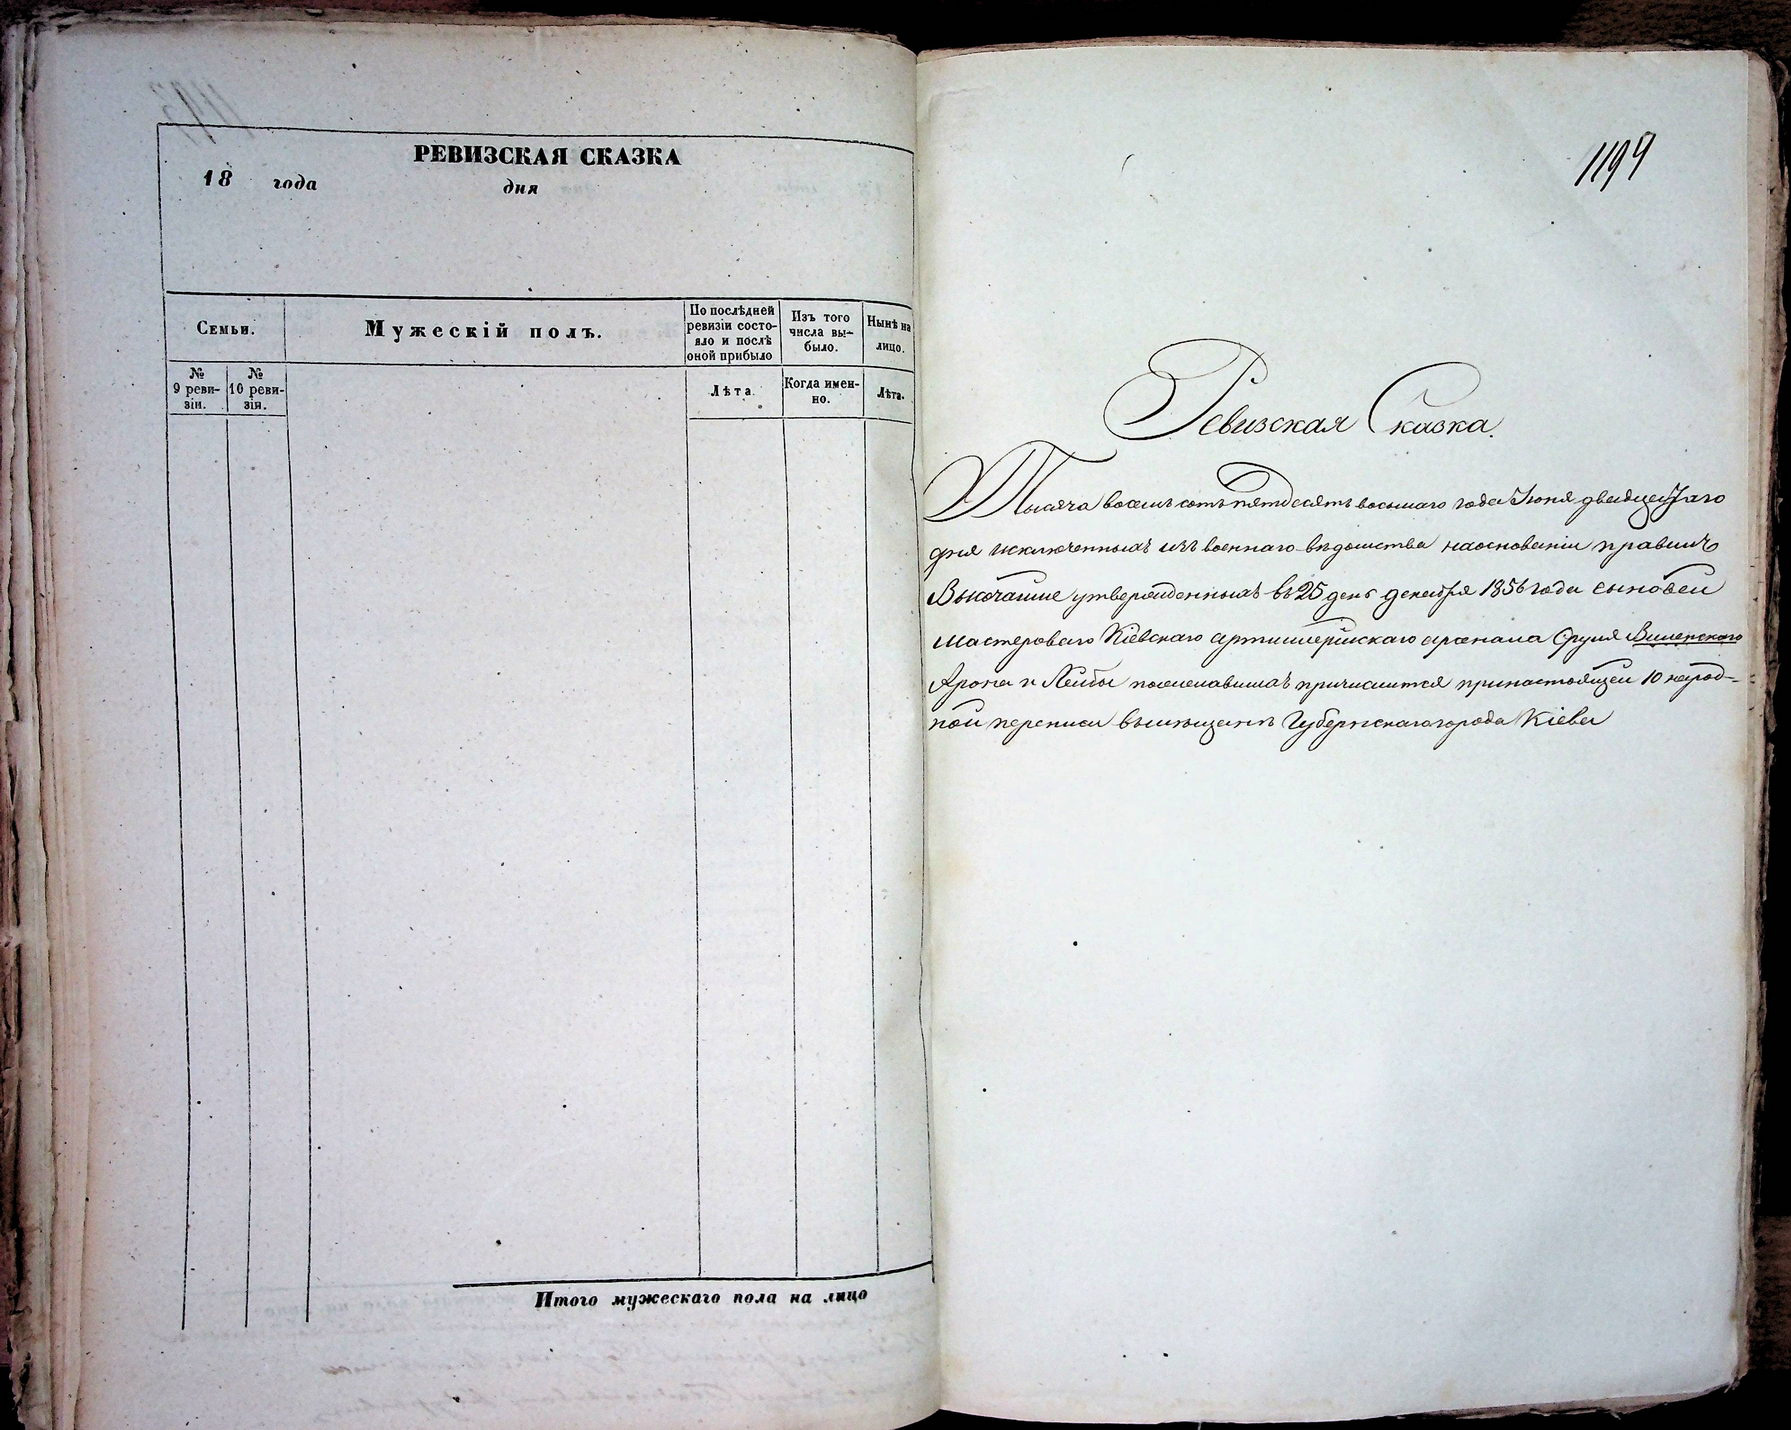 РЕВИЗСКАЯ СКАЗКА
18 года дня
Семьи.
Мужескій полъ.
По послѣдней ревизіи состо-
яло и послѣ оной прибыло
Изъ того числа вы-
было.
Нынѣ на лицо.
№ 9 реви-
зіи.
№ 10 реви-
зія.
Лѣта.
Когда имен-
но.
Лѣта.
Итого мужескаго пола на лицо
1199
Ревизская Сказка.
Тысяча восемьсотъ пятдесятъ восьмаго года Іюня двадцатаго
дня исключенныхъ изъ военнаго вѣдомства на основаніи правилъ
Высочайше утвержденныхъ въ 25 день декабря 1856 года сыновей
мастероваго Кіевскаго артиллерійскаго арсенала Сруля Виленского
Арона и Лейбы пожелавшихъ причислится при настоящей 10 народ-
ной переписи въ мѣщане Губернскаго города Кіева